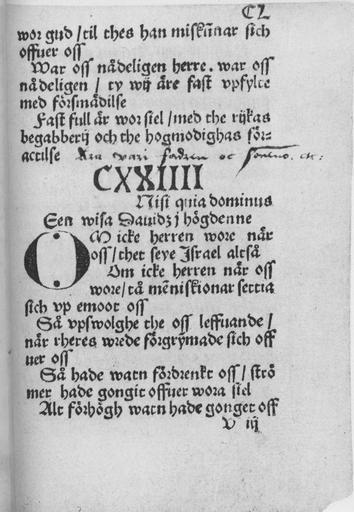 CL
wor gud / til thes han miskũnar sich
offuer oss
War oss nådeligen herre. war oss
nådeligen / ty wij äre fast vpfylte
med försmädilse
Fast full är wor siel / med the rijkas
begabberij och the hogmodighas för-
actilse Ära vari fadren oc sonno. etc:
CXXIIII
Nisi quia dominus
Een wisa Dauidz j högdenne
OM icke herren wore när
oss / thet seye Israel altså
Om icke herren når oss
wore / tå mẽniskionar settia
sich vp emoot oss
Så vpswolghe the oss leffuande /
når theres wrede förgrymade sich off
uer oss
Så hade watn fördrenkt oss / strö
mer hade gongit offuer wora siel
Alt förhögh watn hade gonget off
V iij